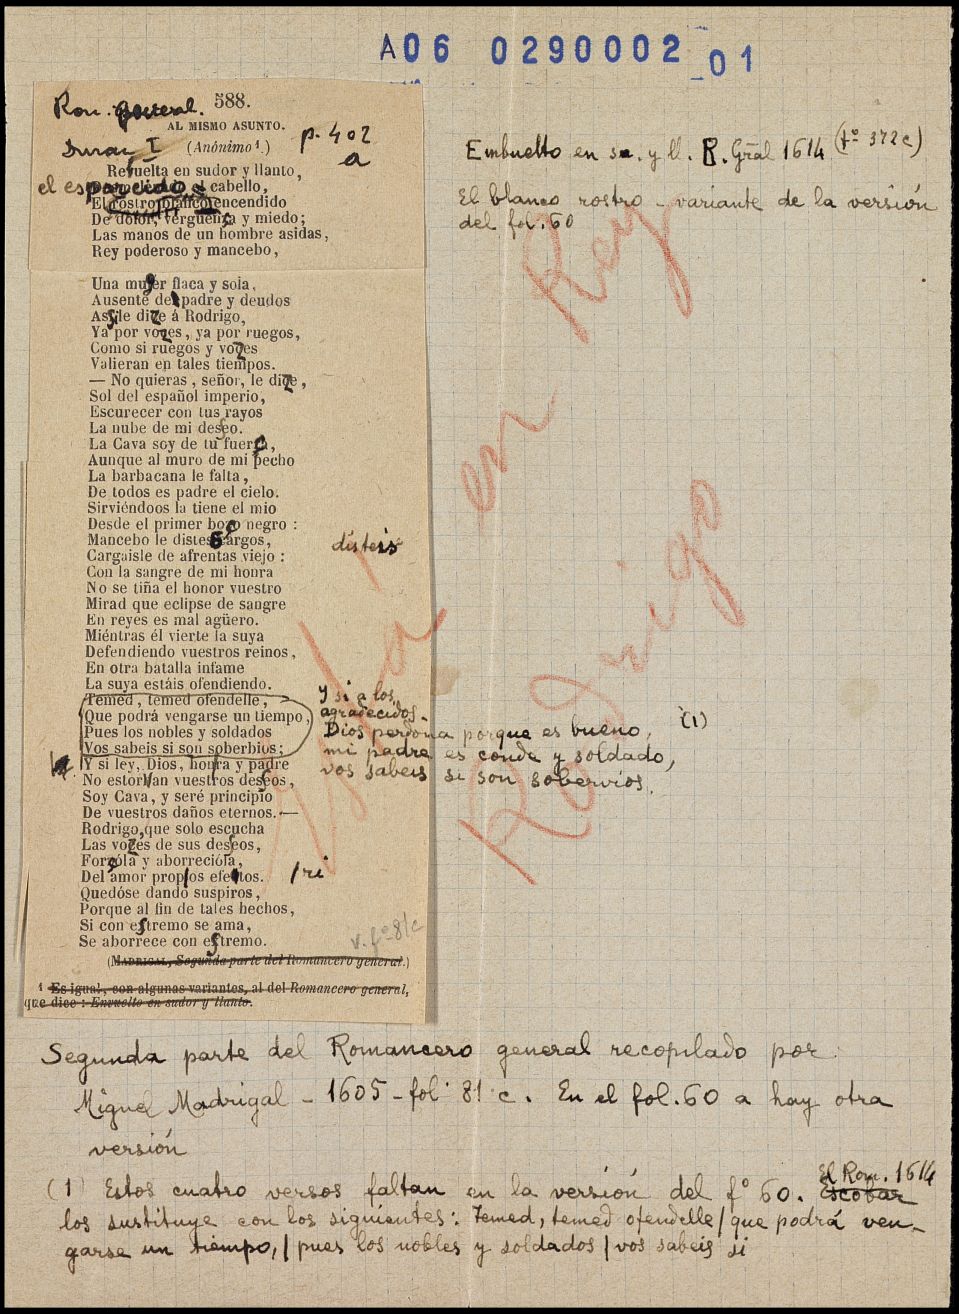 A06 0290002 01
Rom. general. 588.
AL MISMO ASUNTO.
Duran I (Anónimo¹.) p. 402 a
Embuelto en su. y ll. R. Gral 1614 (fº 372 c)
Revuelta en sudor y llanto,
el esparcido cabello,
El rostro blanco encendido
De dolor, vergüenza y miedo;
Las manos de un hombre asidas,
Rey poderoso y mancebo,
El blanco rostro - variante de la versión
del fol. 60
Una mujer flaca y sola,
Ausente de padre y deudos
Assi le dize á Rodrigo,
Ya por vozes, ya por ruegos,
Como si ruegos y vozes
Valieran en tales tiempos.
— No quieras, señor, le dize,
Sol del español imperio,
Escurecer con tus rayos
La nube de mi deseo.
La Cava soy de tu fuerça,
Aunque al muro de mi pecho
La barbacana le falta,
De todos es padre el cielo.
Sirviéndoos la tiene el mio
Desde el primer boço negro:
Mancebo le distes cargos, disteis
Cargaisle de afrentas viejo:
Con la sangre de mi honra
No se tiña el honor vuestro
Mirad que eclipse de sangre
En reyes es mal agüero.
Miéntras él vierte la suya
Defendiendo vuestros reinos,
En otra batalla infame
La suya estáis ofendiendo.
Temed, temed ofendelle,
Que podrá vengarse un tiempo,
Pues los nobles y soldados
Vos sabeis si son soberbios;
Y si a los
agradecidos
Dios perdona porque es bueno, (1)
mi padre es conde y soldado,
vos sabeis si son sobervios.
Y si ley, Dios, honra y padre
No estorvan vuestros deseos,
Soy Cava, y seré principio
De vuestros daños eternos.—
Rodrigo, que solo escucha
Las vozes de sus deseos,
Forçóla y aborrecióla,
Del amor propios efetos. /ri
Quedóse dando suspiros,
Porque al fin de tales hechos,
Si con estremo se ama,
Se aborrece con estremo.
v. fº 81 c
(MADRIGAL, Segunda parte del Romancero general.)
¹ Es igual, con algunas variantes, al del Romancero general,
que dice: Envuelto en sudor y llanto.
Ya en Rey
Rodrigo
Segunda parte del Romancero general recopilado por
Miguel Madrigal - 1605 - fol. 81 c. En el fol. 60 a hay otra
versión
(1) Estos cuatro versos faltan en la versión del fº 60. Escobar El Rom. 1614
los sustituye con los siguientes: Temed, temed ofendelle / que podrá ven-
garse un tiempo, / pues los nobles y soldados / vos sabeis si